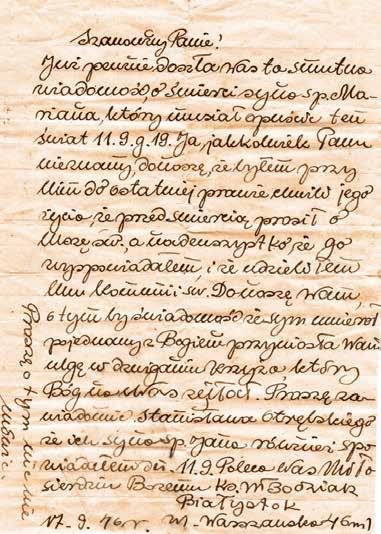 Szanowny Panie!
Już pewnie doszła was ta smutna
wiadomość, o śmierci syna śp. Ma-
riana, który musiał opuścić ten
świat 11.9.g.19. Ja, jakkolwiek Panu
nieznany, donoszę, że byłem przy
Nim do ostatniej prawie chwili jego
życia, że przed śmiercią prosił o
Mszę św., a nadewszystko że go
wyspowiadałem i że udzieliłem
Mu Komunii św. Donoszę Wam,
o tym by świadomość że syn umarł
pojednany z Bogiem przyniosła Wam
ulgę w dźwiganiu krzyża który
Bóg na Was zesłał. Proszę za-
wiadomić Stanisława Otrębskiego
że ich syna śp. Jana również spo-
wiadałem dn. 11.9. Polecam Was Miło-
sierdziu Bożemu ks.
Białystok
17.9.46r. ul. Warszawska 46 m 1
Proszę o tym nie nie
mówić.